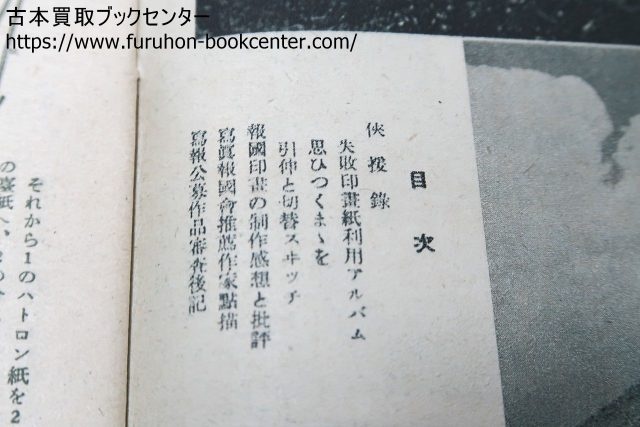 古本買取ブックセンター
https://www.furuhon-bookcenter.com/
目次
俠援錄
失敗印畫紙利用アルバム
思ひつくまゝを
引伸と切替スヰッチ
報國印畫の制作感想と批評
寫眞報國會推薦作家點描
寫報公募作品審査後記
それから1のハトロン紙を2